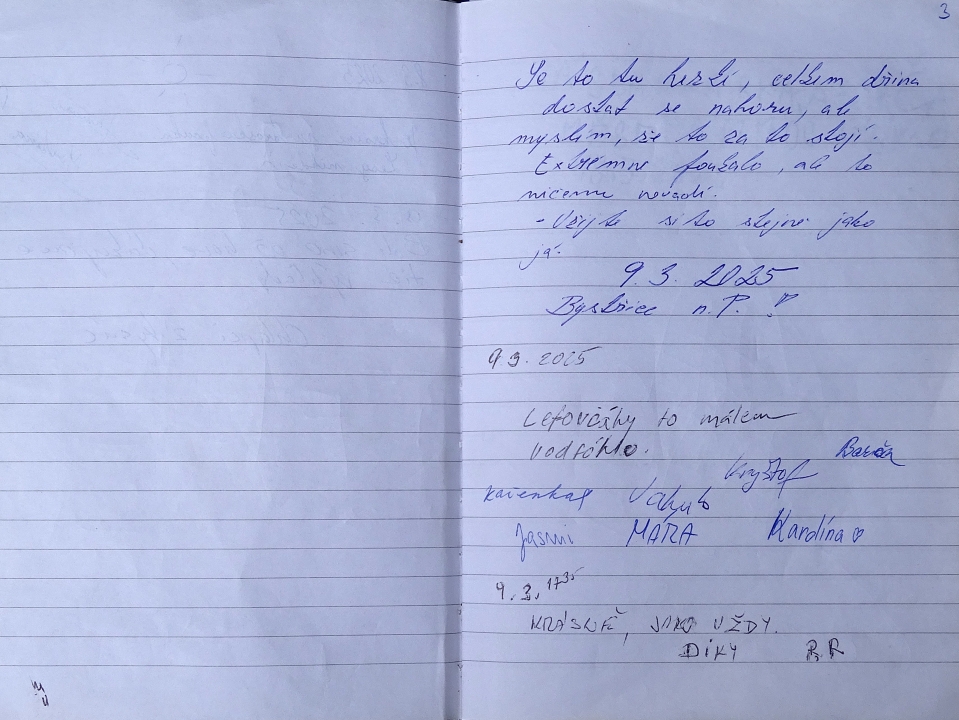 3
Je to tu hezčí, celkem dřina
dostat se nahoru, ale
myslím, že to za to stojí.
Extremně foukalo, ale to
ničemu nevadí.
- Užijte si to stejně jako
já.
9.3. 2025
Bystřice n.P.
9.3. 2025
Letovičáky to málem
vodfóklo.
Barča
Kryštof
Kačenka Jakub
Jasmi MÁRA Karolína ♡
9.3. 17³⁵
KRÁSNĚ, JAKO VŽDY.
DÍKY RR